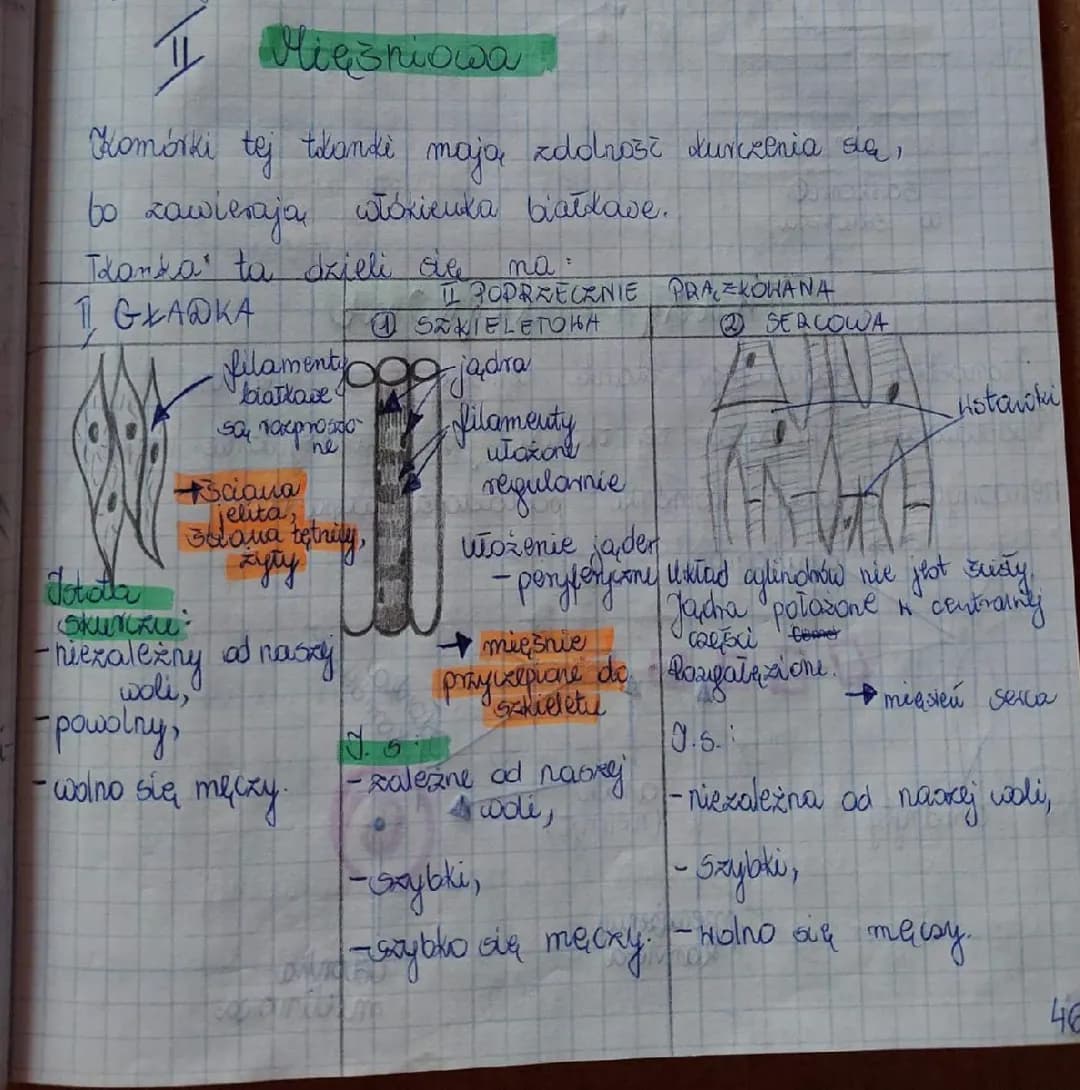 II Mięśniowa
Komórki tej tkanki mają zdolność kurczenia się,
bo zawierają włókienka białkowe.
Tkanka ta dzieli się na:
I GŁADKA
filamenty
białkowe
są rozproszo-
ne
→ ściana
jelita,
ściana tętnicy,
żyły
Istota
skurczu:
- niezależny od naszej
woli,
- powolny,
- wolno się męczy.
II POPRZECZNIE PRĄŻKOWANA
① SZKIELETOWA
jądra
filamenty
ułożone
regularnie
ułożenie jąder
- peryferyczny
→ mięśnie
przyczepione do
szkieletu
I. s.:
- zależne od naszej
woli,
- szybki,
- szybko się męczy.
② SERCOWA
wstawki
Układ cylindrów nie jest ścisły.
Jądra położone w centralnej
części
Rozgałęzione.
→ mięsień serca
I.s.:
- niezależna od naszej woli,
- szybki,
- wolno się męczy.
46